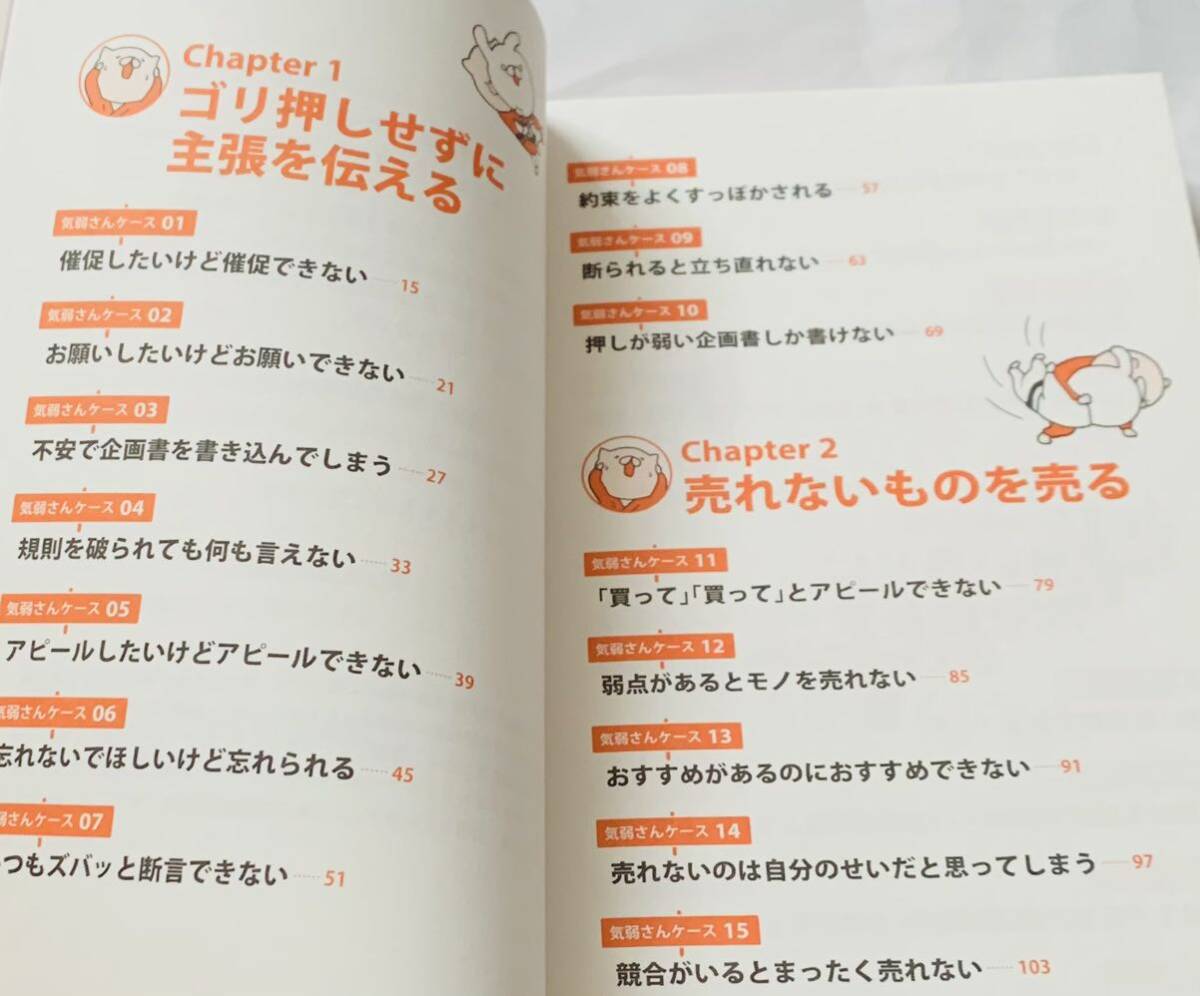 Chapter 1
ゴリ押しせずに
主張を伝える
気弱さんケース 01
催促したいけど催促できない 15
気弱さんケース 02
お願いしたいけどお願いできない 21
気弱さんケース 03
不安で企画書を書き込んでしまう 27
気弱さんケース 04
規則を破られても何も言えない 33
気弱さんケース 05
アピールしたいけどアピールできない 39
気弱さんケース 06
忘れないでほしいけど忘れられる 45
弱さんケース 07
つもズバッと断言できない 51
気弱さんケース 08
約束をよくすっぽかされる 57
気弱さんケース 09
断られると立ち直れない 63
気弱さんケース 10
押しが弱い企画書しか書けない 69
Chapter 2
売れないものを売る
気弱さんケース 11
「買って」「買って」とアピールできない 79
気弱さんケース 12
弱点があるとモノを売れない 85
気弱さんケース 13
おすすめがあるのにおすすめできない 91
気弱さんケース 14
売れないのは自分のせいだと思ってしまう 97
気弱さんケース 15
競合がいるとまったく売れない 103